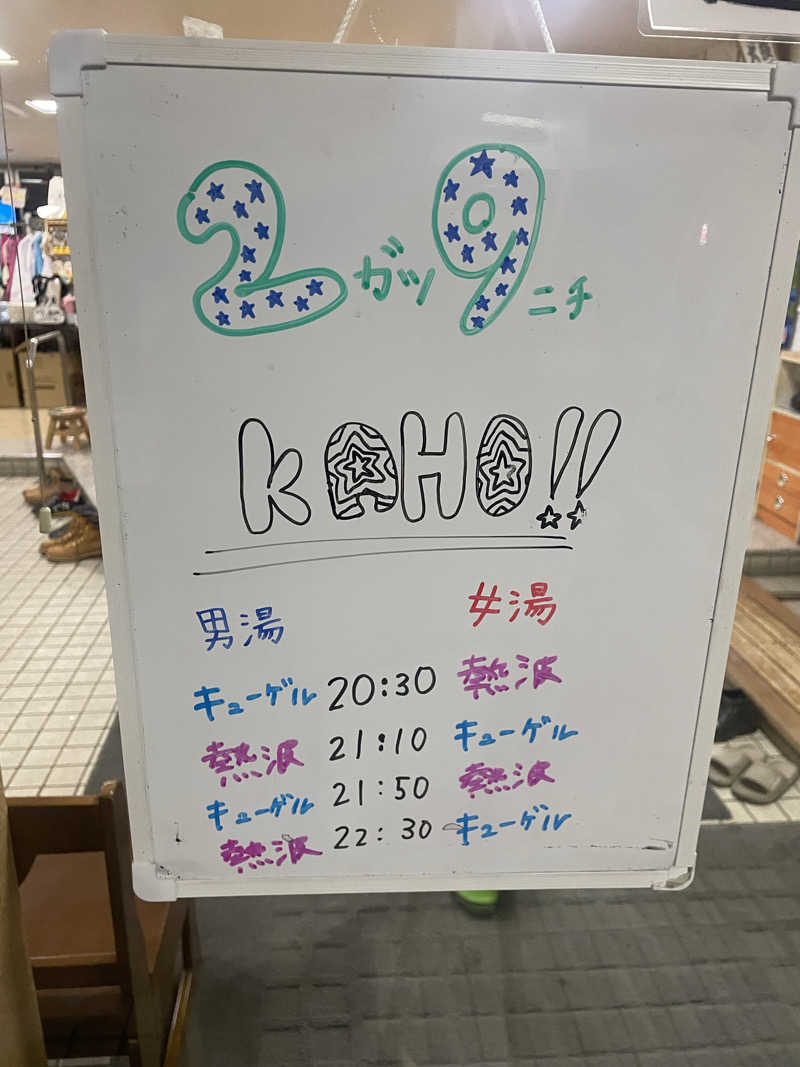 2ガツ9ニチ
KAHO!!
男湯 女湯
キューゲル 20:30 熱波
熱波 21:10 キューゲル
キューゲル 21:50 熱波
熱波 22:30 キューゲル